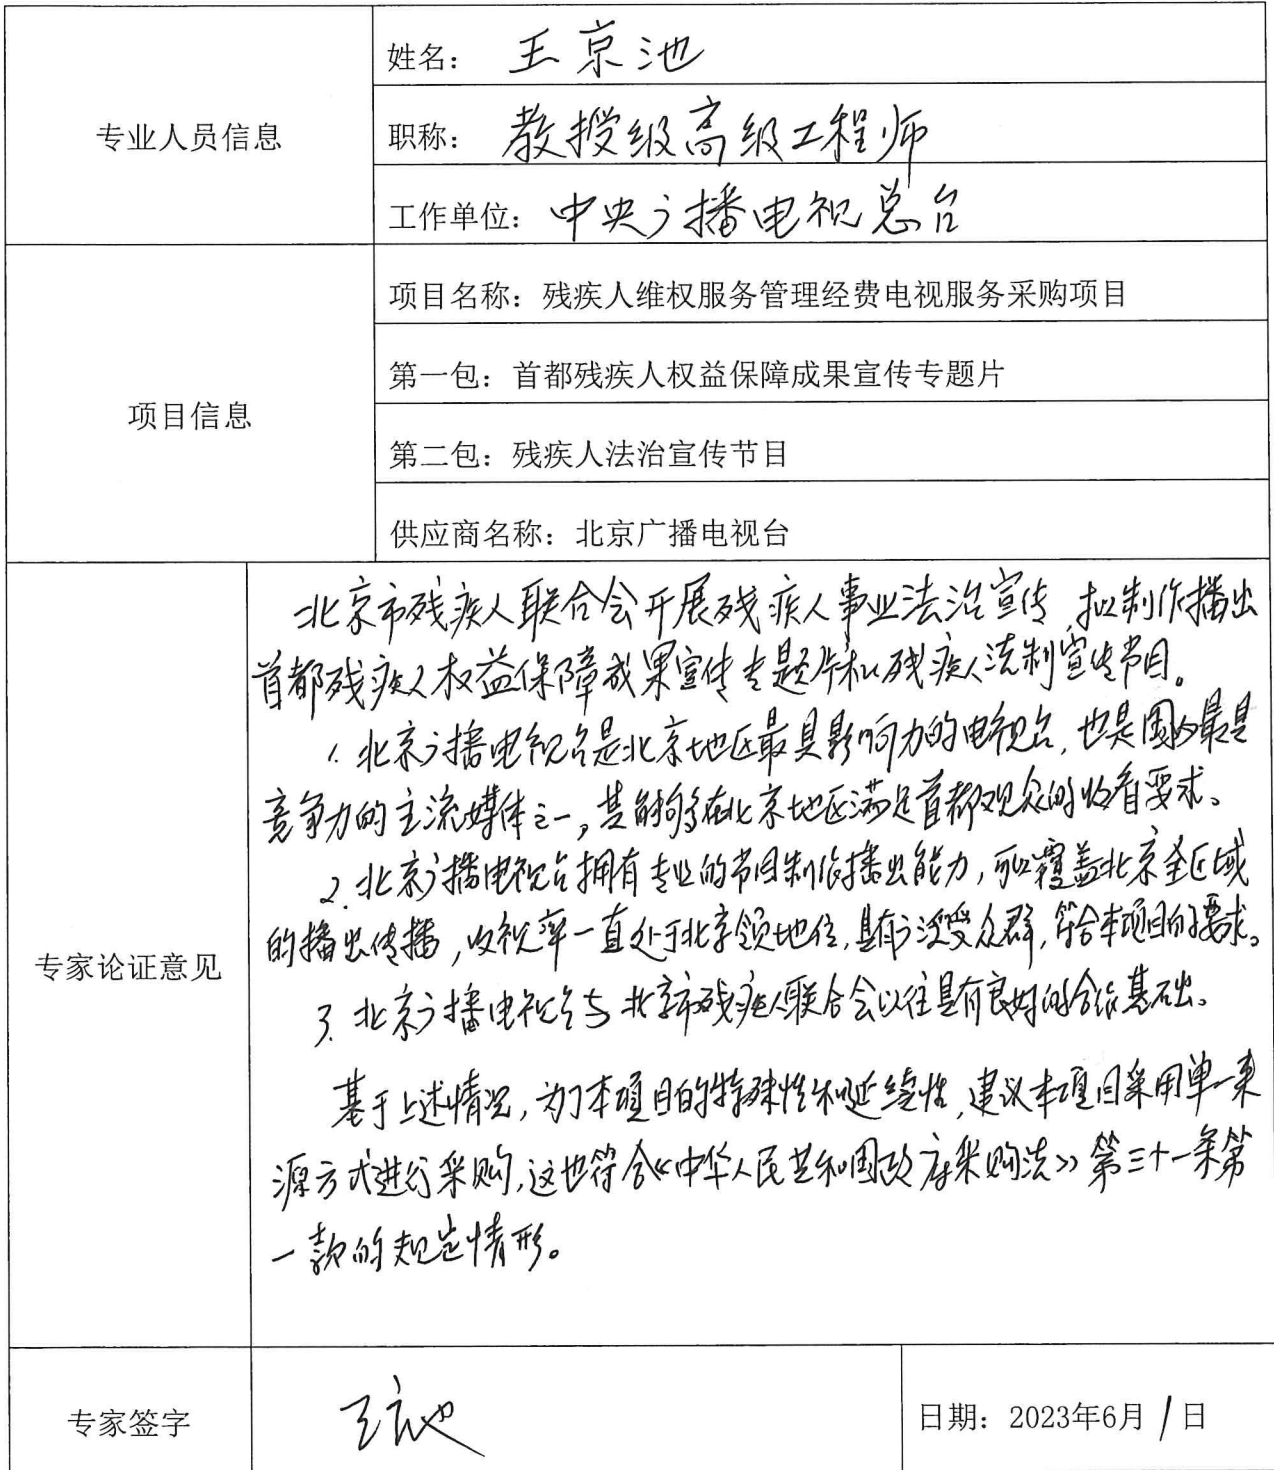 专业人员信息
姓名：王京池
职称：教授级高级工程师
工作单位：中央广播电视总台
项目信息
项目名称：残疾人维权服务管理经费电视服务采购项目
第一包：首都残疾人权益保障成果宣传专题片
第二包：残疾人法治宣传节目
供应商名称：北京广播电视台
专家论证意见
北京市残疾人联合会开展残疾人事业法治宣传，拟制作播出
首都残疾人权益保障成果宣传专题片和残疾人法制宣传节目。
1. 北京广播电视台是北京地区最具影响力的电视台，也是国内最具
竞争力的主流媒体之一，其能够在北京地区满足首都观众的收看要求。
2. 北京广播电视台拥有专业的节目制作播出能力，可以覆盖北京全区域
的播出传播，收视率一直处于北京领先地位，具有广泛受众群，符合本项目的要求。
3. 北京广播电视台与北京市残疾人联合会以往具有良好的合作基础。
基于上述情况，为了本项目的特殊性和延续性，建议本项目采用单一来
源方式进行采购，这也符合《中华人民共和国政府采购法》第三十一条第
一款的规定情形。
专家签字
王京池
日期：2023年6月1日